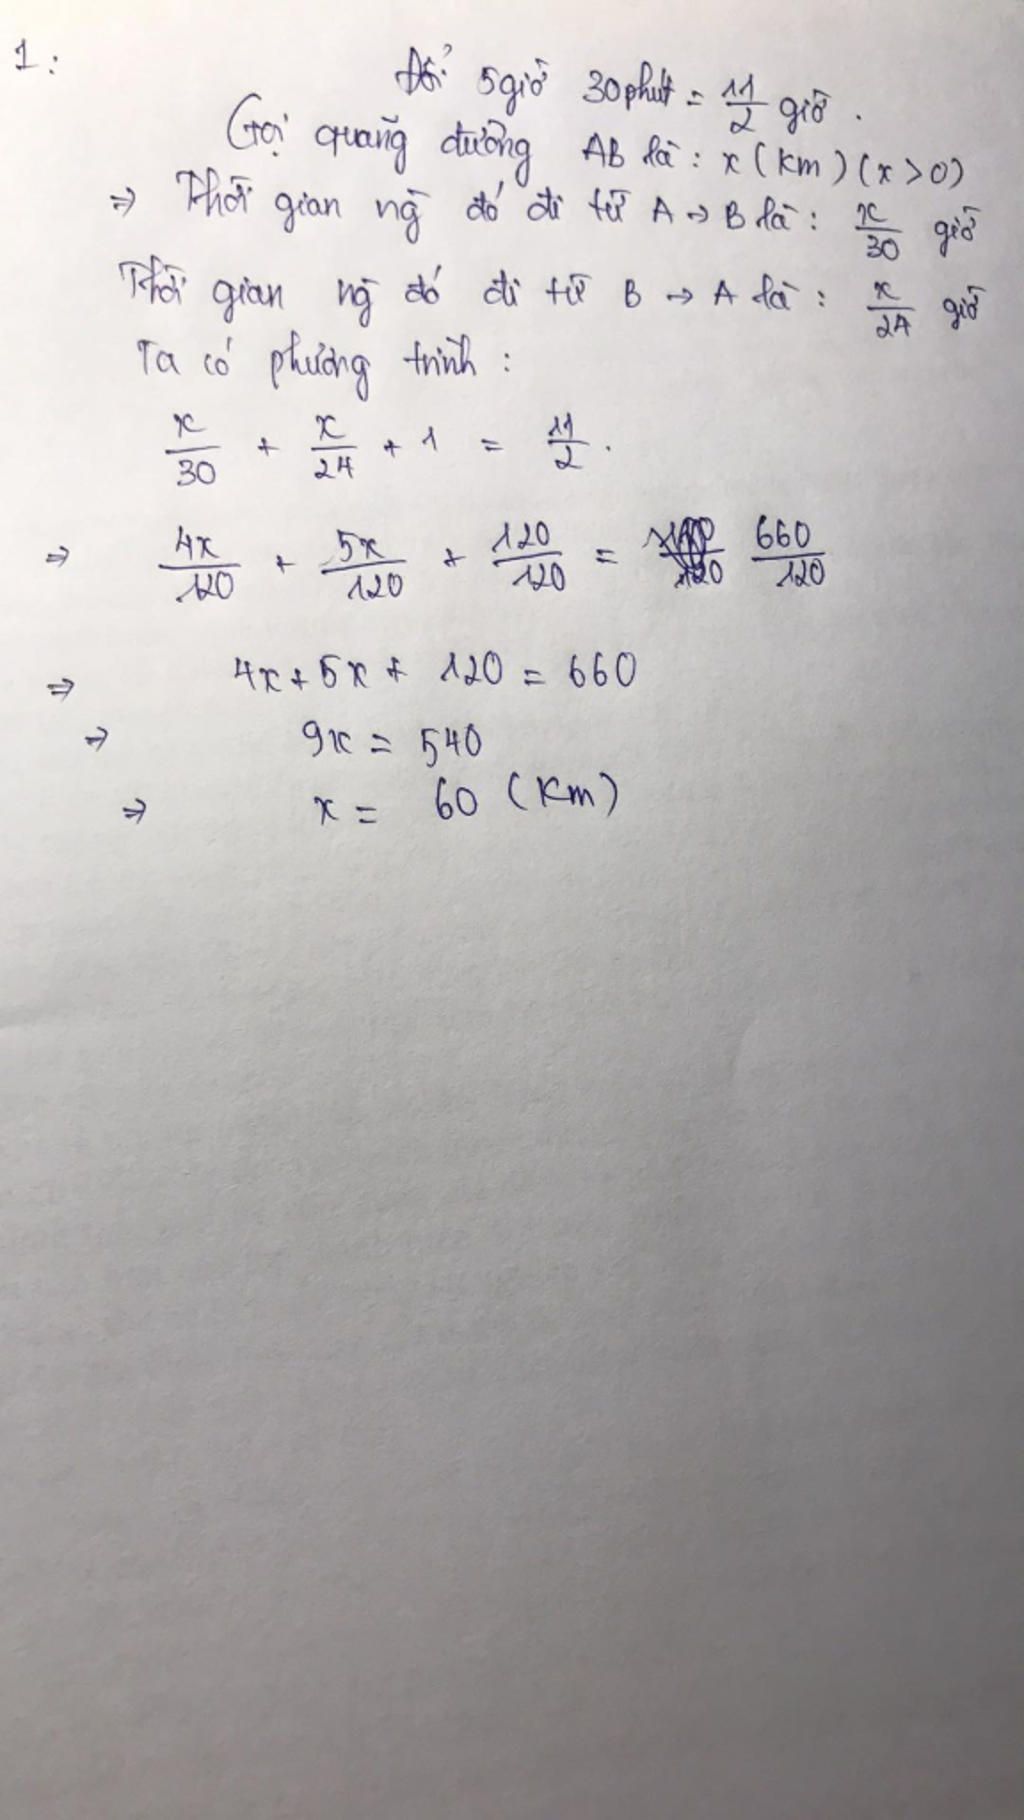 1:
Đổi 5giờ 30phút = 11/2 giờ.
Gọi quãng đường AB là: x (km) (x > 0)
⇒ Thời gian ng` đó đi từ A → B là: x/30 giờ
Thời gian ng` đó đi từ B → A là: x/24 giờ
Ta có phương trình:
x/30 + x/24 + 1 = 11/2.
⇒ 4x/120 + 5x/120 + 120/120 = 660/120
⇒ 4x + 5x + 120 = 660
⇒ 9x = 540
⇒ x = 60 (Km)